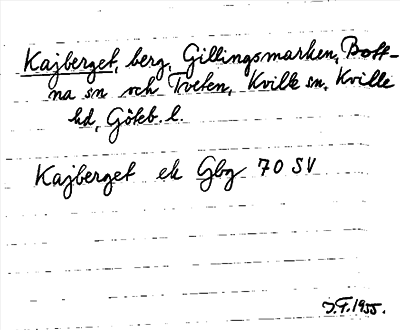 Kajberget, berg, Gillingsmarken, Bott-
na sn och Tveten, Kville sn, Kville
hd, Göteb. l.
Kajberget ek Gbg 70 SV
J.F. 1955.